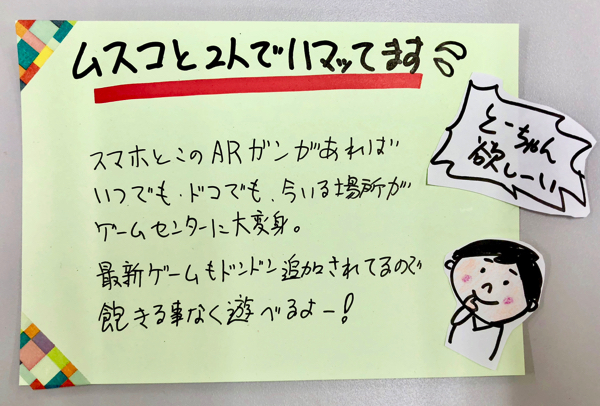 ムスコと2人でハマッてます
とーちゃん
欲しーい
スマホとこのARガンがあれば
いつでも・ドコでも、今いる場所が
ゲームセンターに大変身。
最新ゲームもドンドン追加されてるので
飽きる事なく遊べるよー!